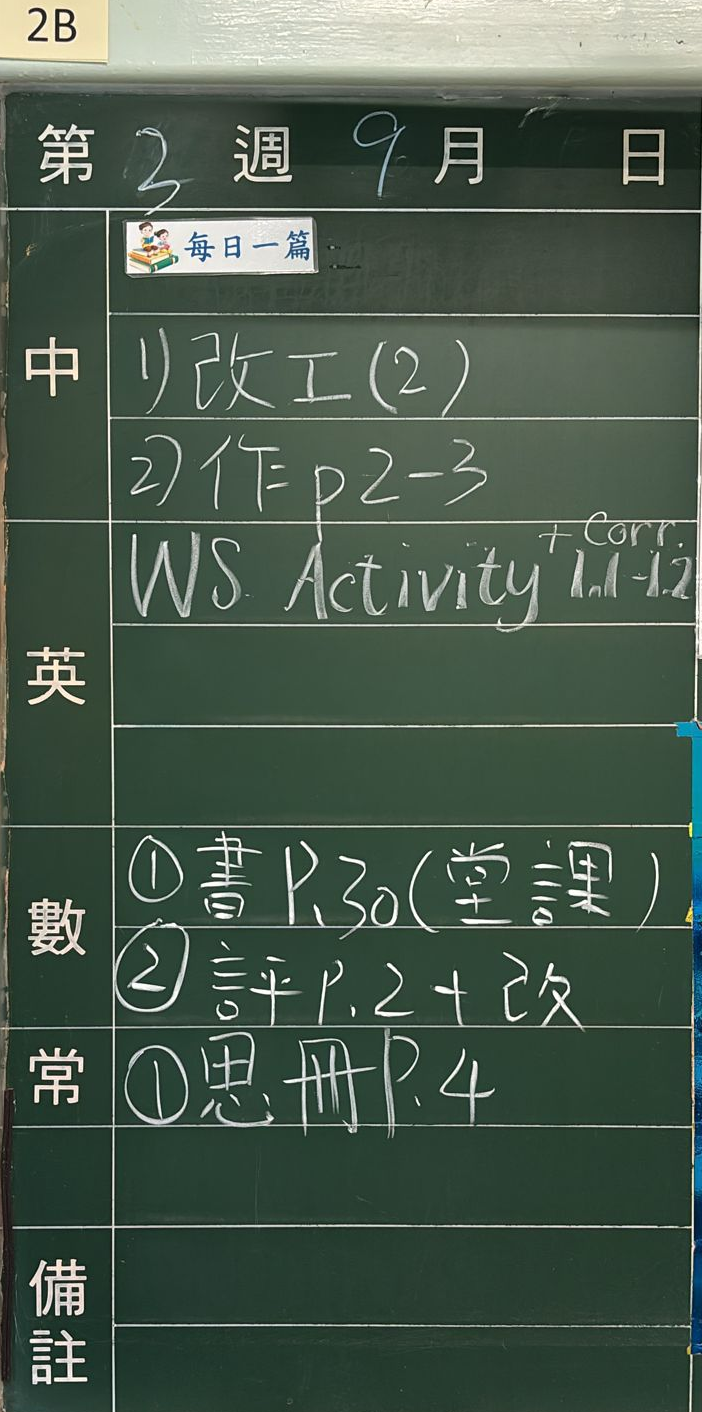 2B
第 3 週 9 月 日
每日一篇
中
1) 改工(2)
2) 作 p2-3
英
WS Activity + Corr. 1.1-1.2
數
① 書 P.30 (堂課)
② 評 P.2 + 改
常
① 思冊 P.4
備註